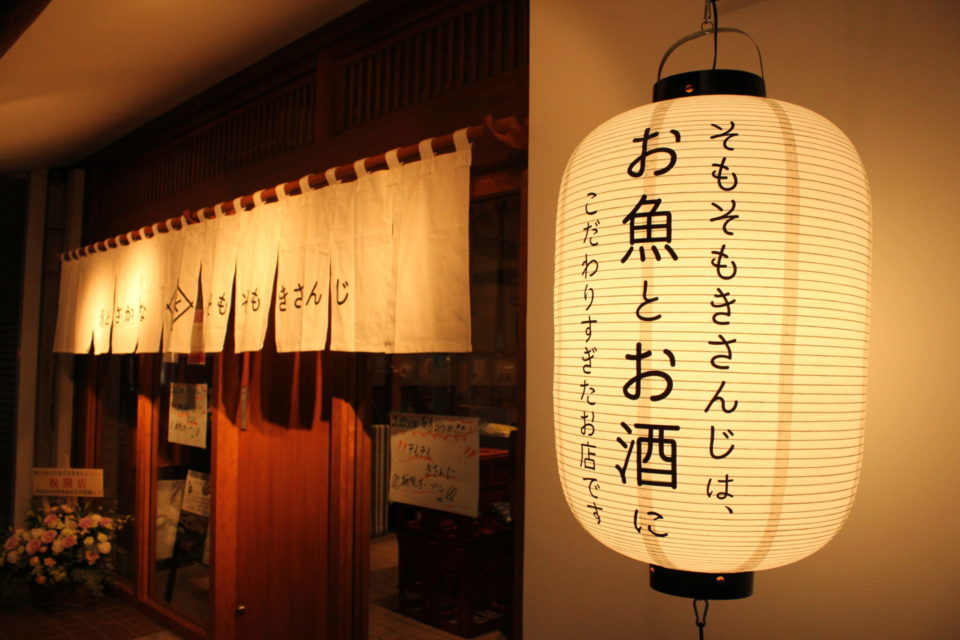 そもそもきさんじは、
お魚とお酒に
こだわりすぎたお店です
酒とさかな
そもそも きさんじ
祝開店
そもそも
きさんじ